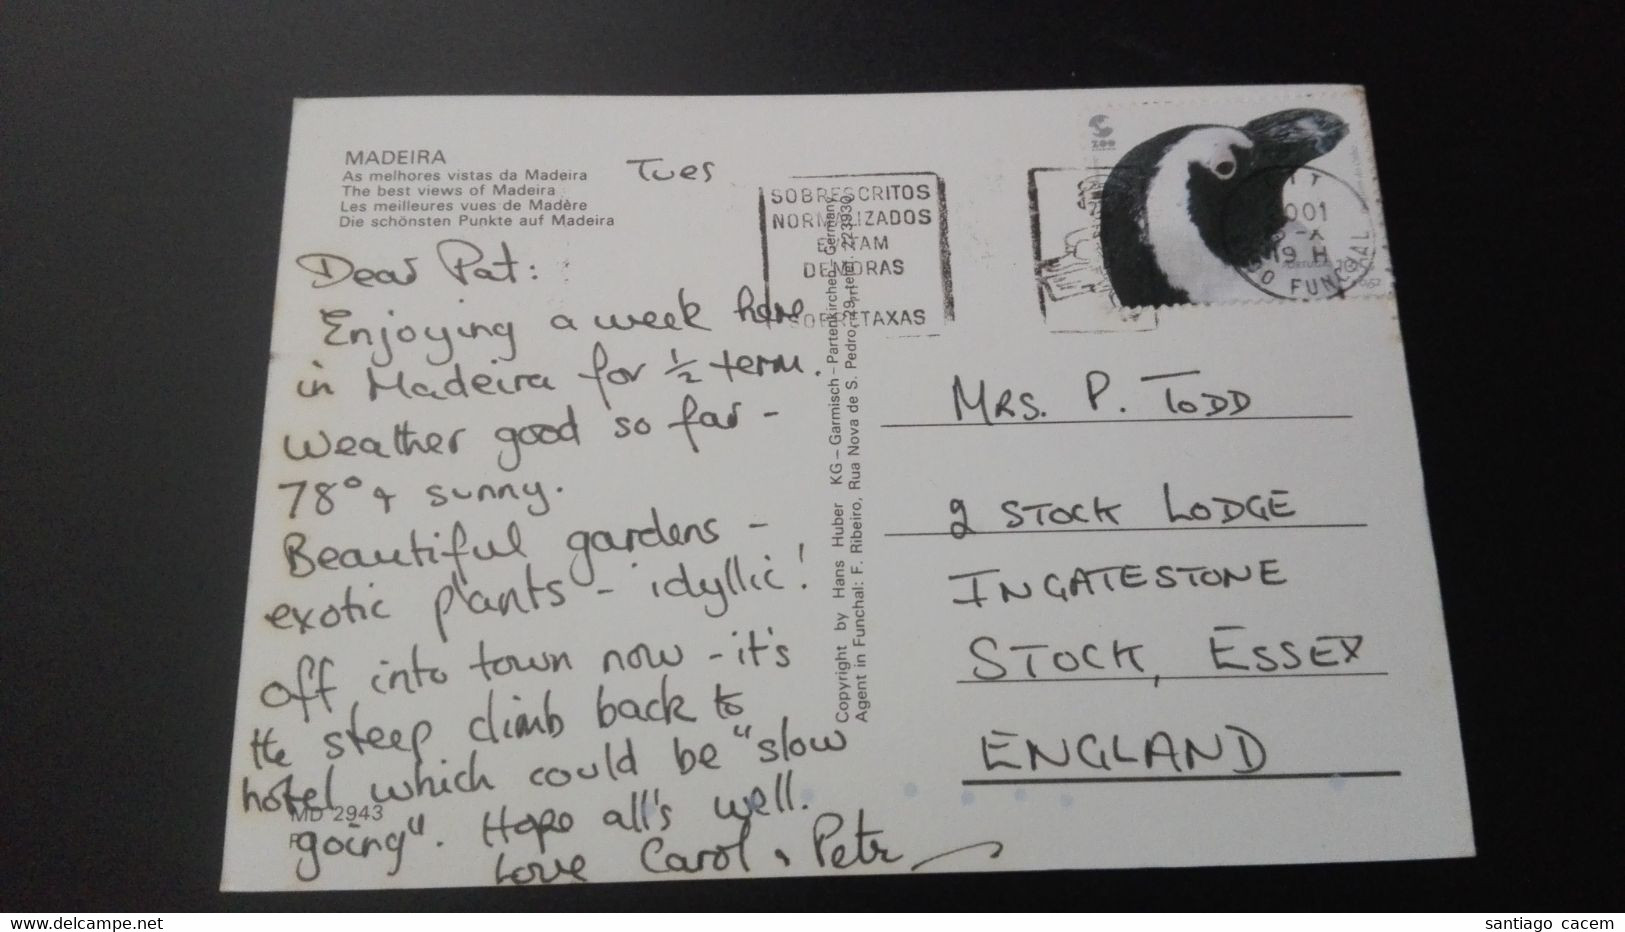 MADEIRA
As melhores vistas da Madeira
The best views of Madeira
Les meilleures vues de Madère
Die schönsten Punkte auf Madeira
Tues
Dear Pat:
Enjoying a week here
in Madeira for ½ term.
Weather good so far -
78° & sunny.
Beautiful gardens -
exotic plants - idyllic!
Off into town now - it's
the steep climb back to
hotel which could be "slow
going". Hope all's well.
Love Carol & Pete
MD 2943
Copyright by Hans Huber KG – Garmisch – Partenkirchen – Germany
Agent in Funchal: F. Ribeiro, Rua Nova de S. Pedro, 29,
SOBRESCRITOS
NORMALIZADOS
EVITAM
DEMORAS
SOBRETAXAS
ZOO
2001
19 H
PORTUGAL
FUNCHAL
MRS. P. TODD
2 STOCK LODGE
INGATESTONE
STOCK, ESSEX
ENGLAND
santiago cacem